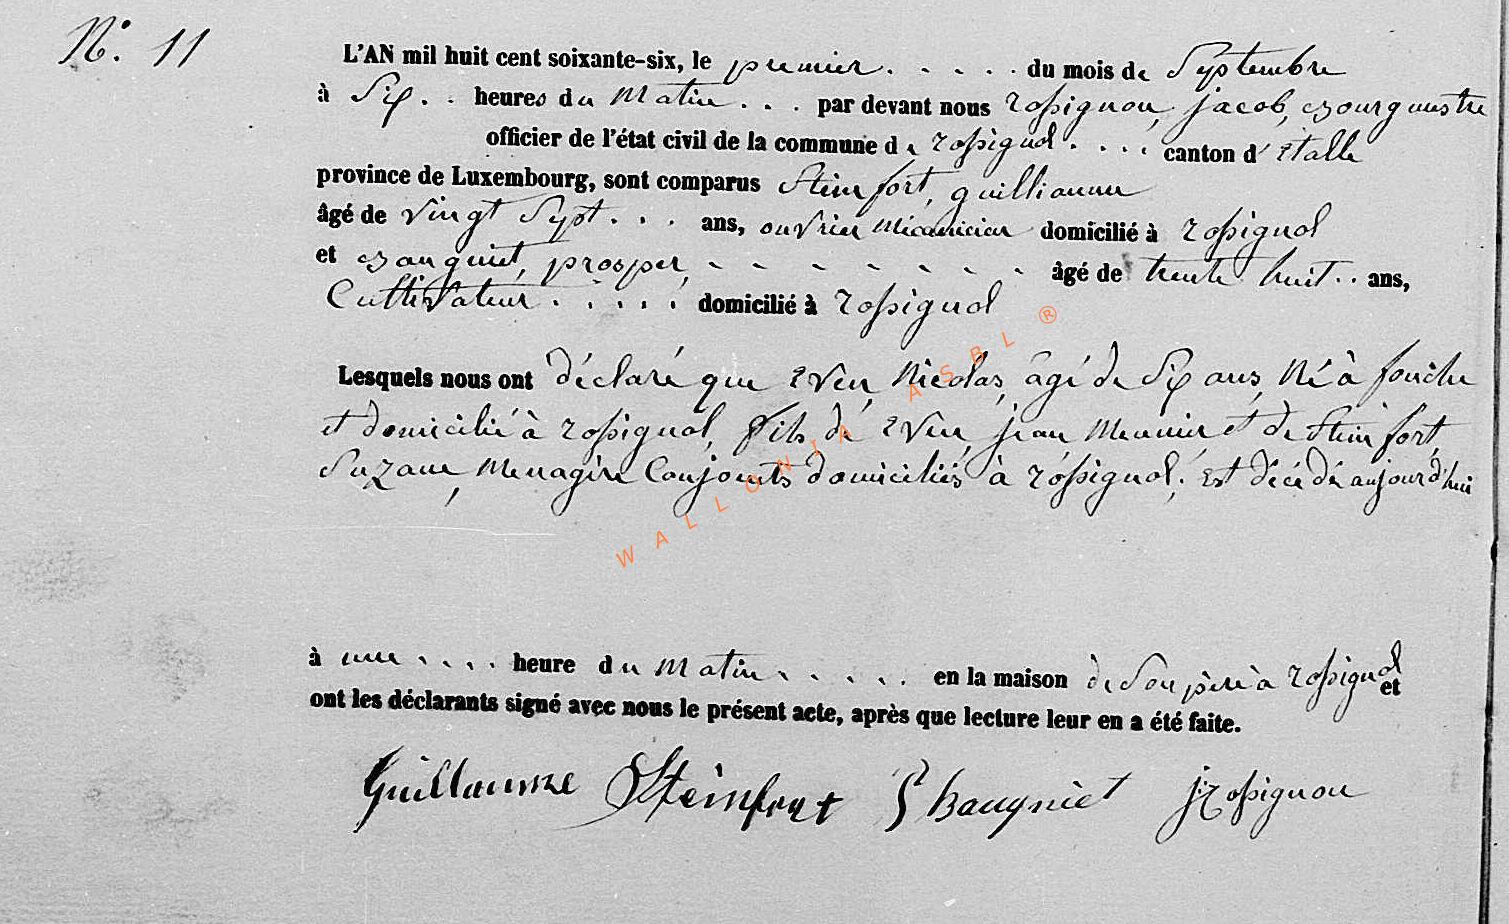 N°. 11
L'AN mil huit cent soixante-six, le premier . . . . . du mois de Septembre
à Six . . heures du Matin . . . par devant nous rossignon, jacob, bourgmestre
officier de l'état civil de la commune de rossignol . . . . canton d'étalle
province de Luxembourg, sont comparus Steinfort, guilliaume
âgé de vingt Sept . . . ans, ouvrier Mécanicien domicilié à rossignol
et bauguiet, prosper, - - - - - - - - âgé de trente huit . . ans,
Cultivateur . . . . . domicilié à rossignol
Lesquels nous ont déclaré que even, Nicolas, âgé de Six ans, Né à fouche
et domicilié à rossignol, fils de even, jean Meunier et de Steinfort,
Suzane, Menagère Conjoints domiciliés à rossignol, Est décédé aujourd'hui
à une . . . . heure du Matin . . . . . en la maison de Son père à rossignol et
ont les déclarants signé avec nous le présent acte, après que lecture leur en a été faite.
Guillaume Steinfort P bauguiet j. rossignon
WALLONIA ASBL ®